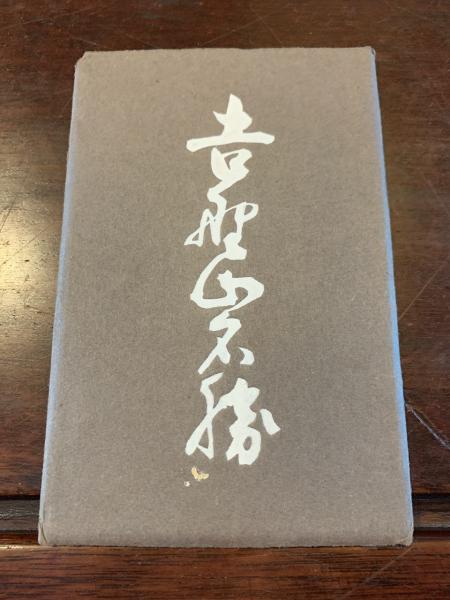 吉野山名勝